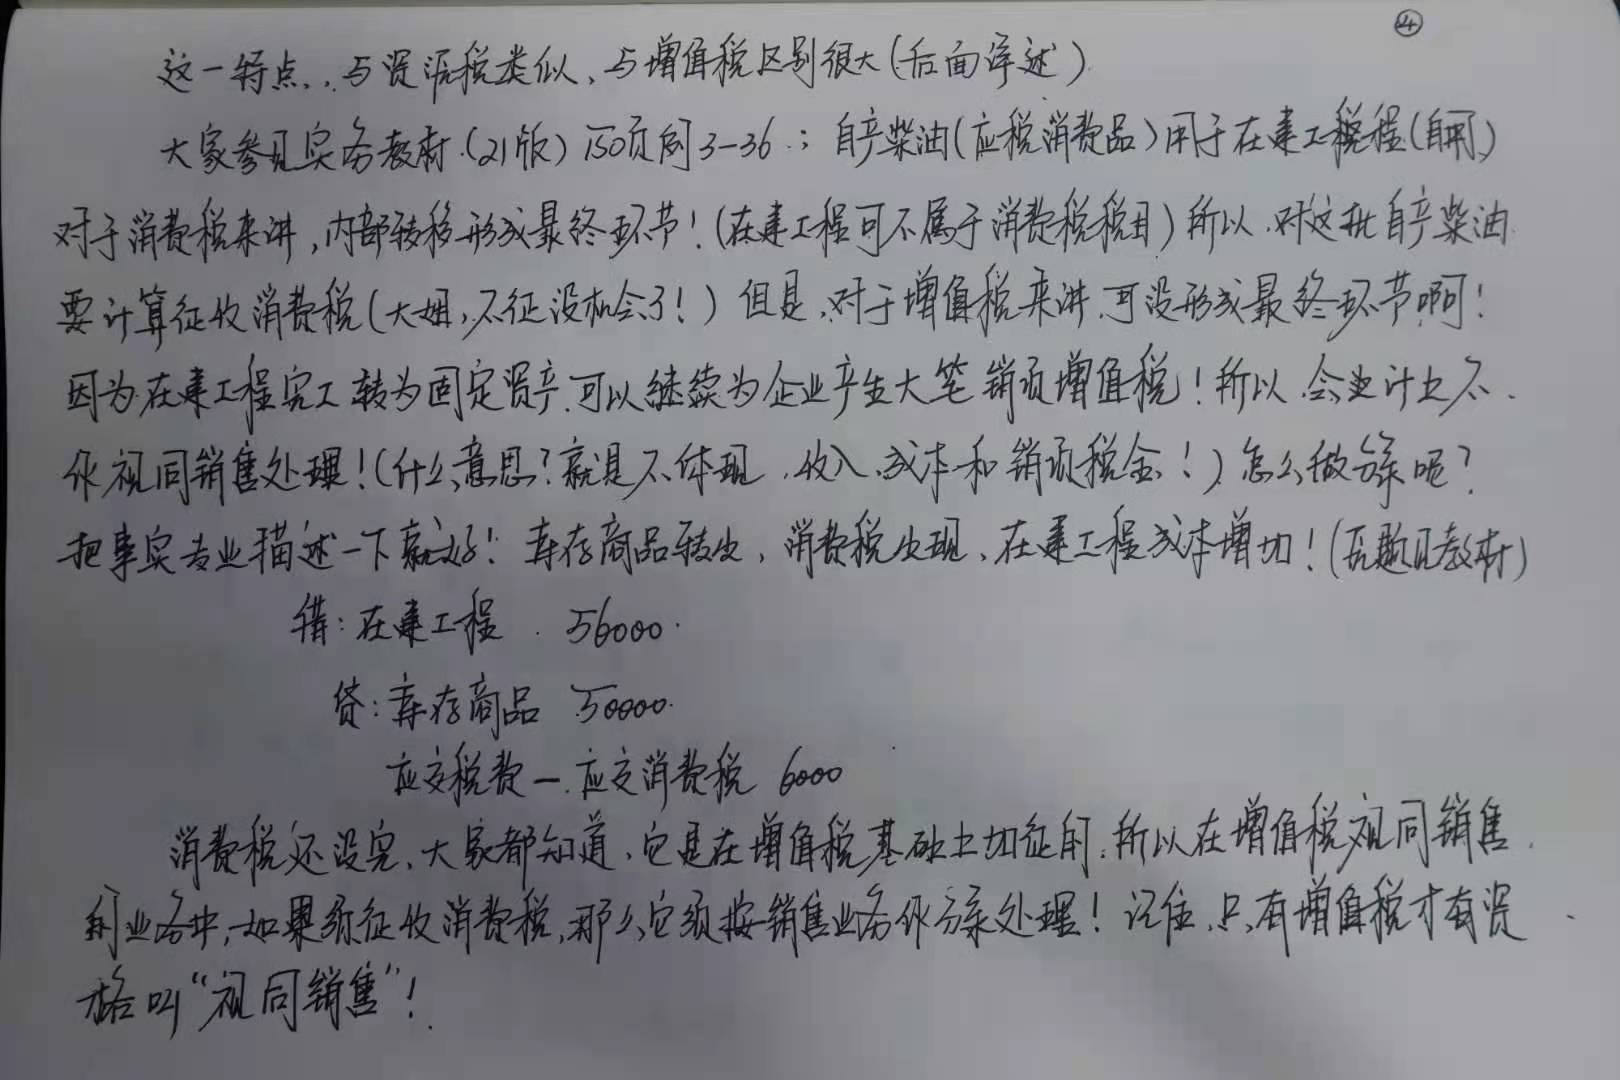 ④
这一特点,与资源税类似,与增值税区别很大(后面详述)
大家参见实务教材(21版)150页例3-36;自产柴油(应税消费品)用于在建工程(自用)
对于消费税来讲,内部转移形成最终环节!(在建工程可不属于消费税税目)所以,对这批自产柴油
要计算征收消费税(大姐,不征没机会了!)但是,对于增值税来讲,可没形成最终环节啊!
因为在建工程完工转为固定资产,可以继续为企业产生大笔销项增值税!所以,会计上不
作视同销售处理!(什么意思?就是不体现,收入、成本和销项税金!)怎么做分录呢?
把事实专业描述一下就好!库存商品转出,消费税出现,在建工程成本增加!(原题见教材)
借:在建工程 56000
贷:库存商品 50000
应交税费—应交消费税 6000
消费税还没完,大家都知道,它是在增值税基础上加征的,所以在增值税视同销售
的业务中,如果须征收消费税,那么它须按销售业务作分录处理!记住,只有增值税才有资
格叫“视同销售”!